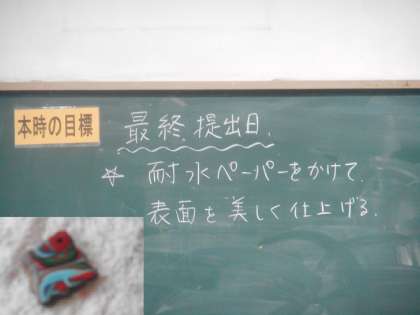 本時の目標
最終提出日.
☆ 耐水ペーパーをかけて、
表面を美しく仕上げる.